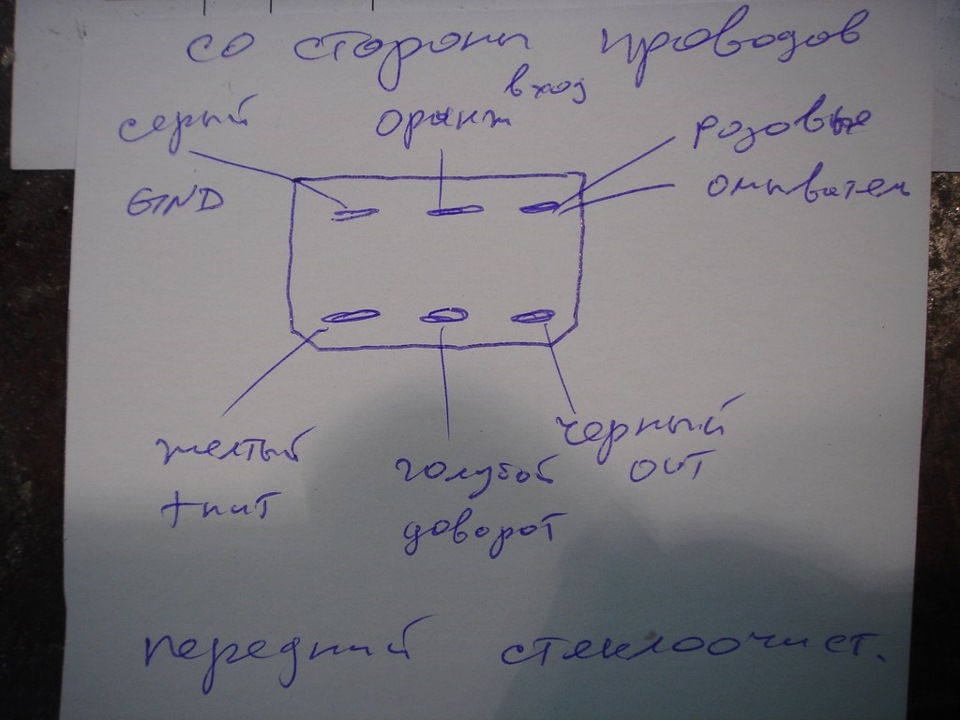 со стороны проводов
серый
оранж вход
розовые
GND
омыватель
желтый
+пит
голубой
доворот
черный
OUT
передний стеклоочист.